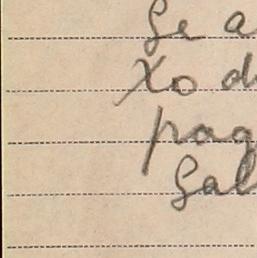 Se a
Xo d
pag
Sal